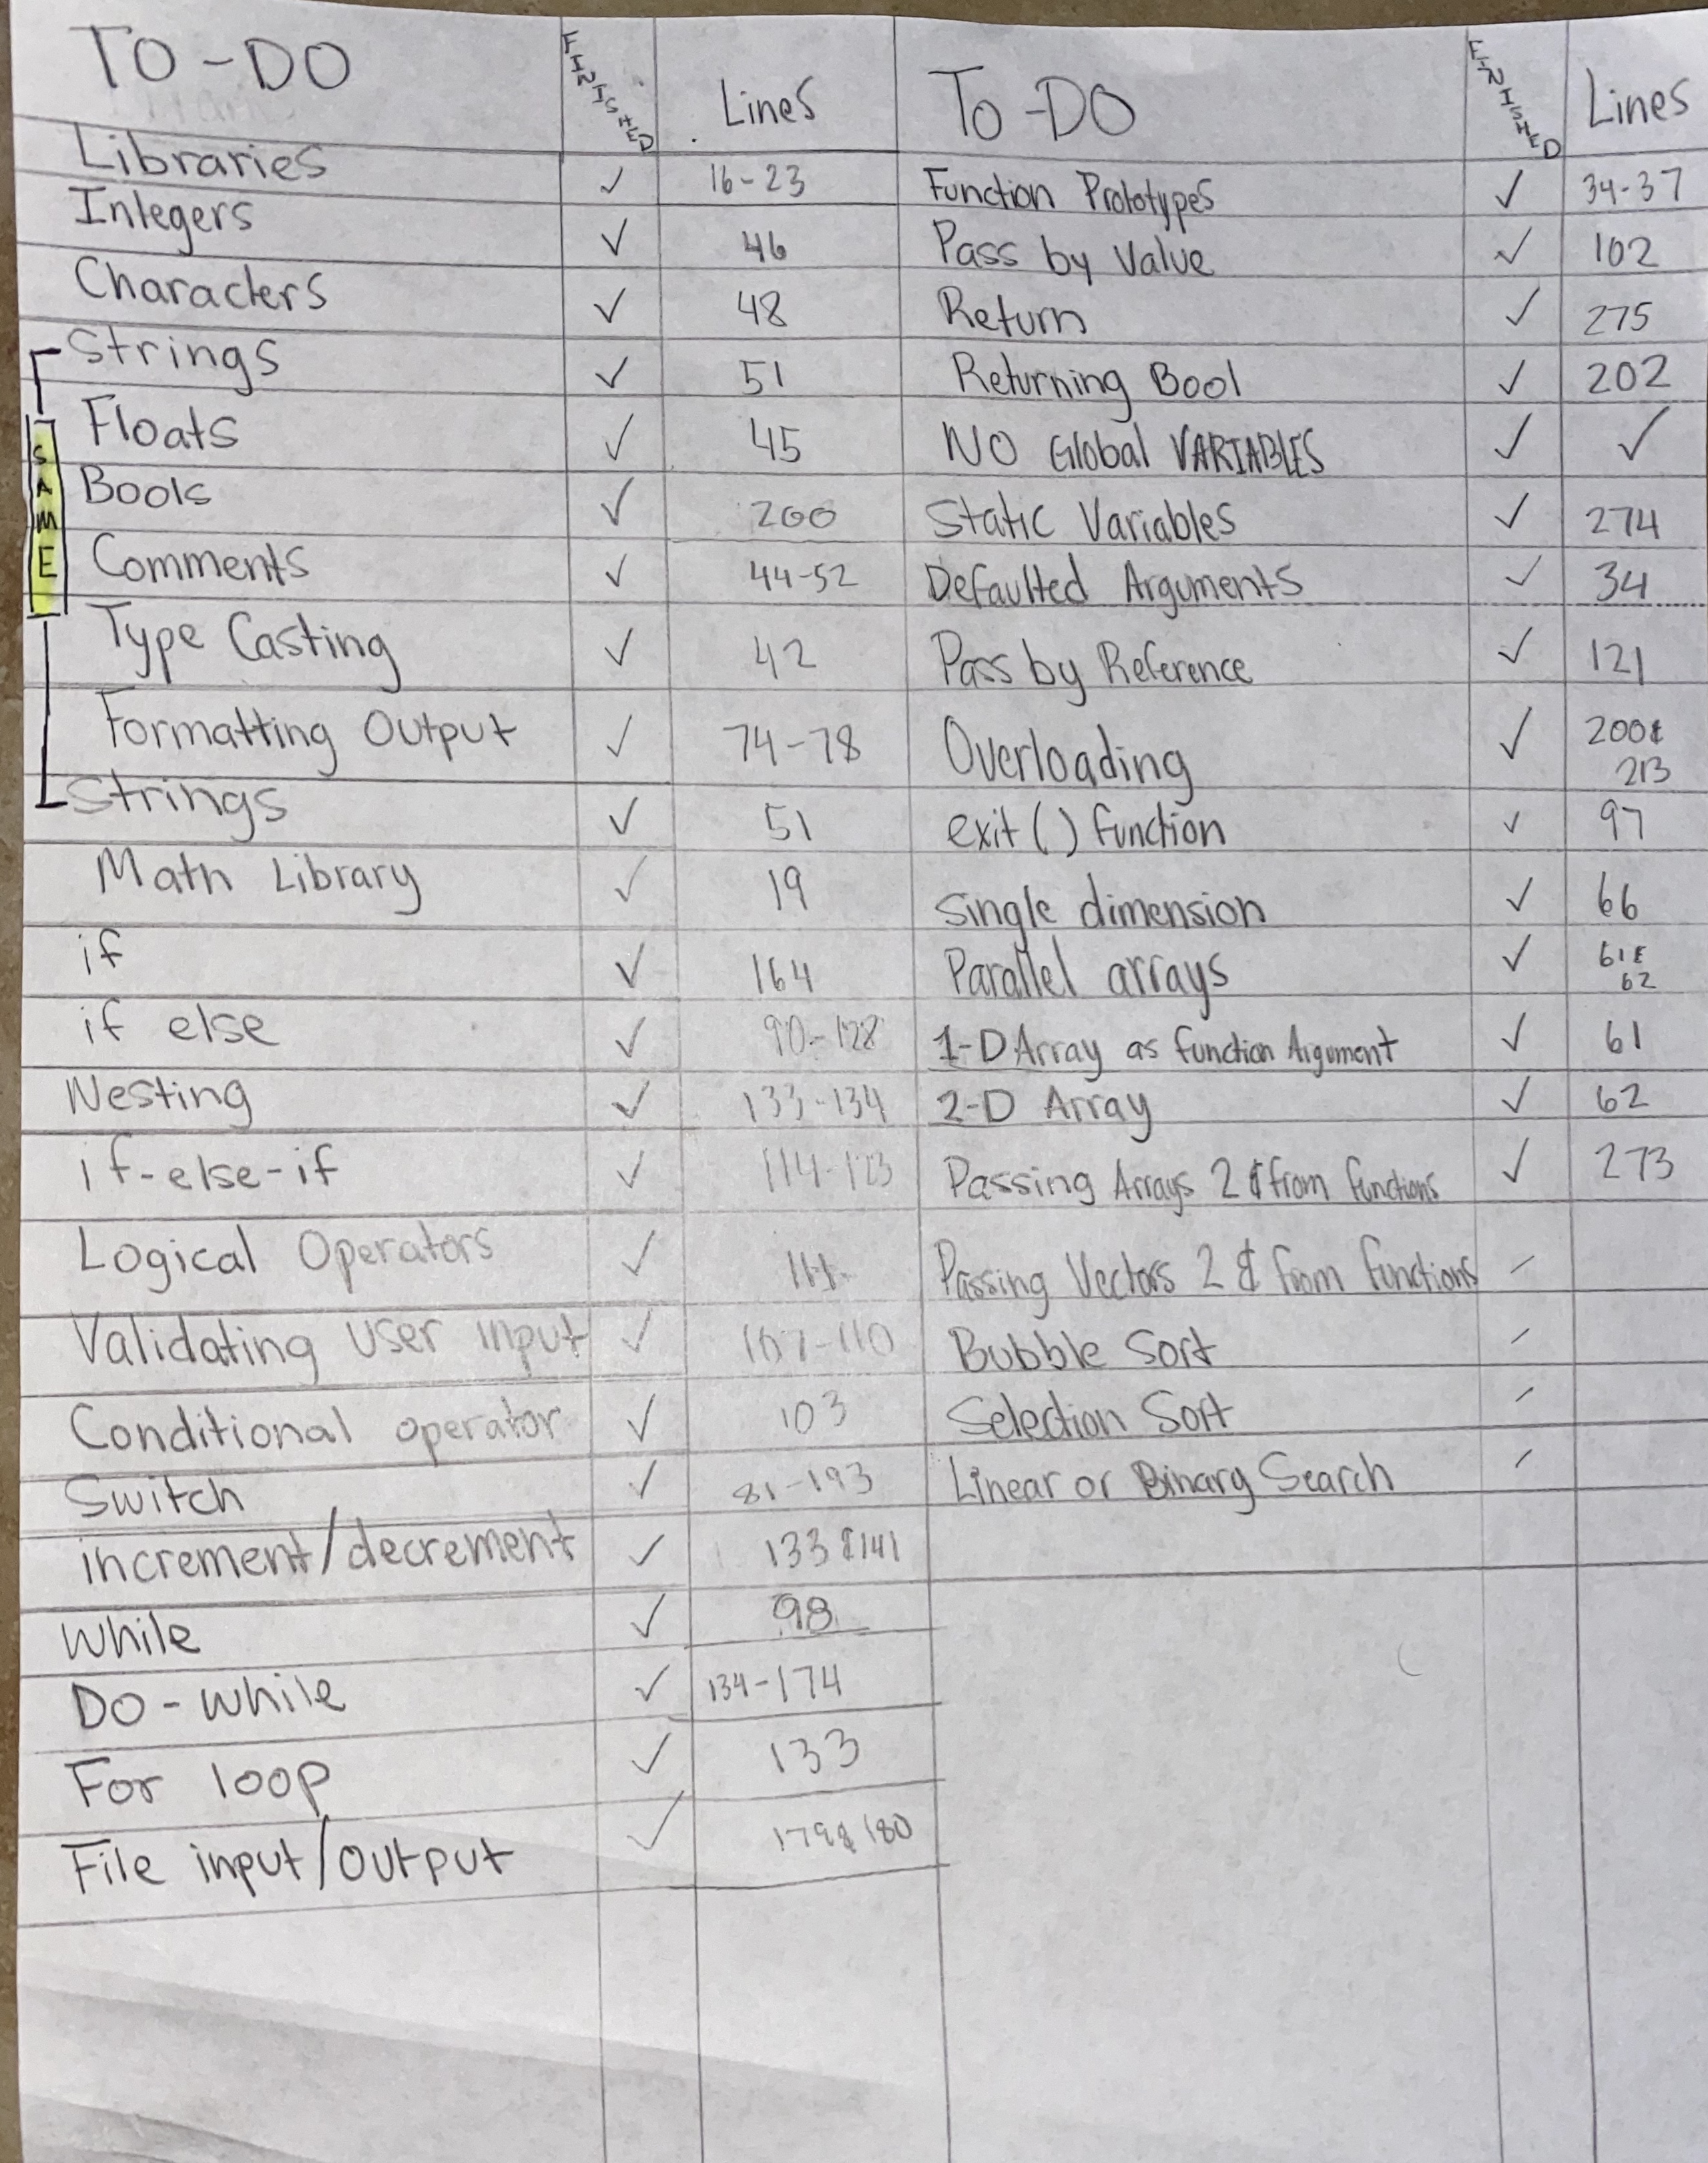 TO-DO FINISHED Lines
Libraries ✓ 16-23
Integers ✓ 46
Characters ✓ 48
Strings ✓ 51
Floats ✓ 45
Bools ✓ 200
Comments ✓ 44-52
Type Casting ✓ 42
Formatting Output ✓ 74-78
Strings ✓ 51
SAME
Math Library ✓ 19
if ✓ 164
if else ✓ 90-128
Nesting ✓ 133-134
if-else-if ✓ 114-123
Logical Operators ✓
Validating user input ✓ 107-110
Conditional operator ✓ 103
Switch ✓ 81-193
increment/decrement ✓ 133 & 141
while ✓ 98
Do-while ✓ 134-174
For loop ✓ 133
File input/output ✓ 179 & 180
To-DO FINISHED Lines
Function Prototypes ✓ 34-37
Pass by Value ✓ 102
Return ✓ 275
Returning Bool ✓ 202
NO Global VARIABLES ✓ ✓
Static Variables ✓ 274
Defaulted Arguments ✓ 34
Pass by Reference ✓ 121
Overloading ✓ 200 &
213
exit() function ✓ 97
Single dimension ✓ 66
Parallel arrays ✓ 61 &
62
1-D Array as function Argument ✓ 61
2-D Array ✓ 62
Passing Arrays 2 & from functions ✓ 273
Passing Vectors 2 & from functions /
Bubble Sort /
Selection Sort /
Linear or Binary Search /